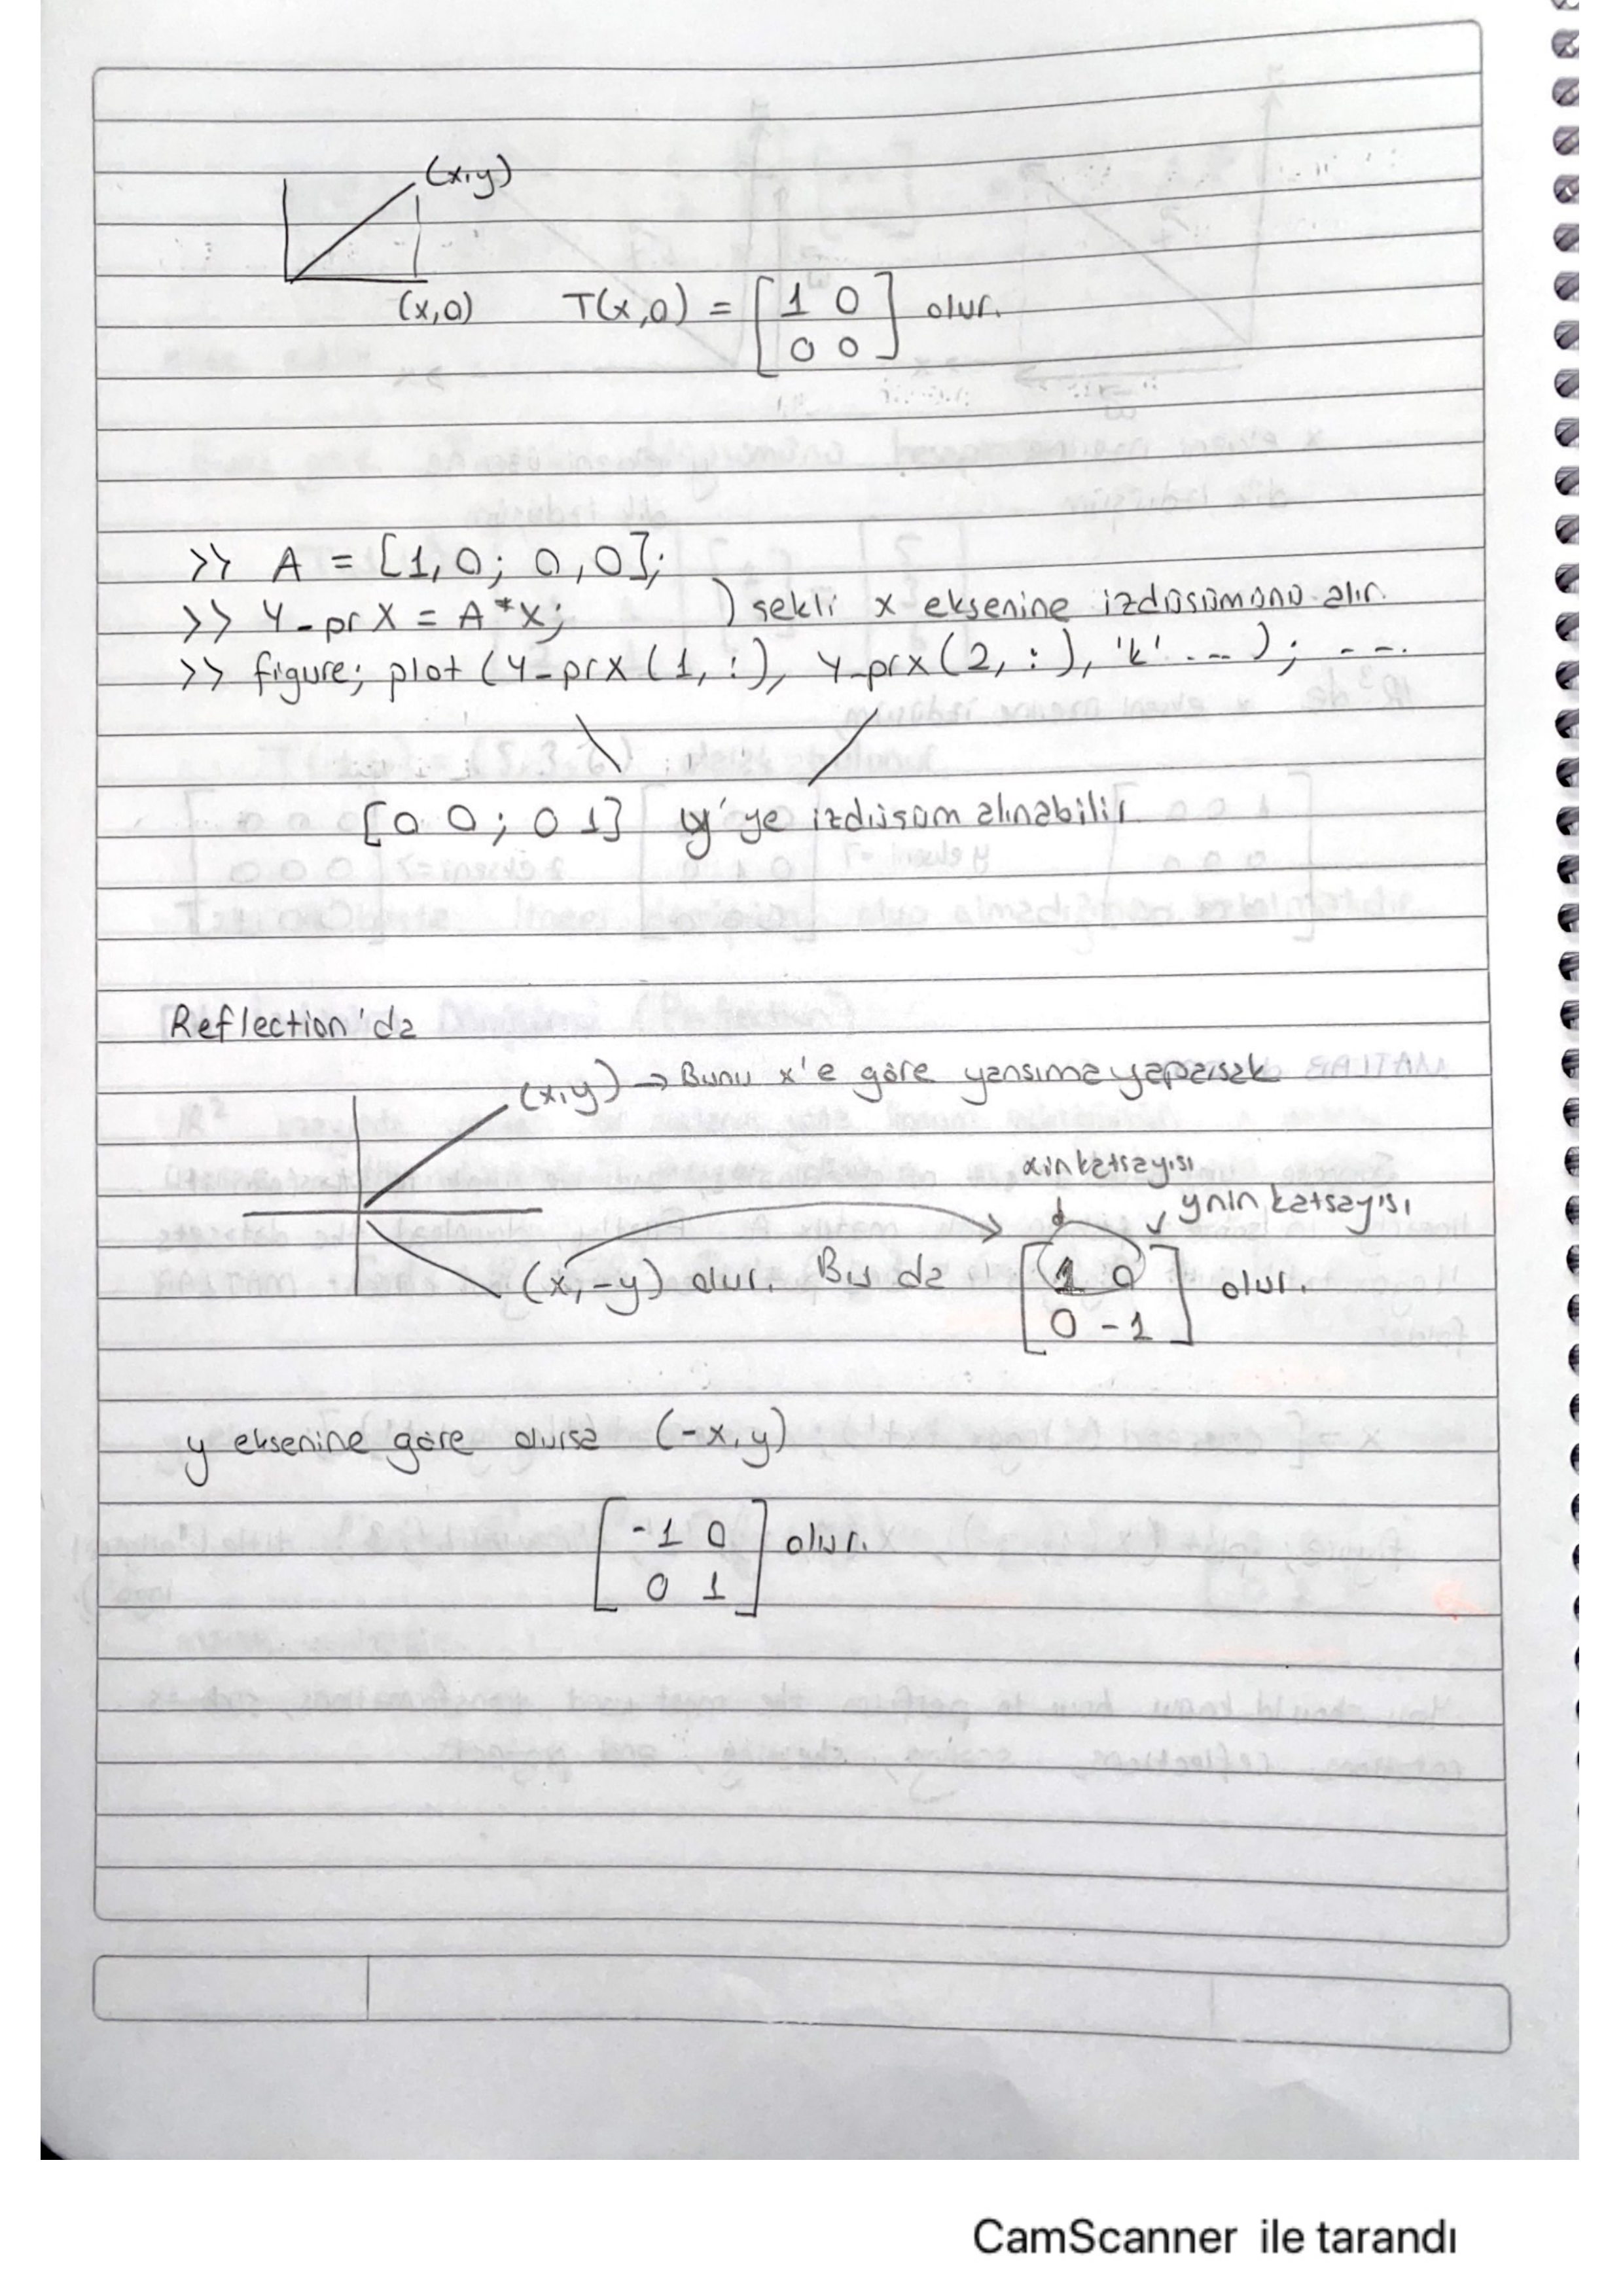 (x,y)
(x,0) T(x,0) = [1 0
0 0] olur.
>> A = [1,0; 0,0];
>> Y_prX = A*X; ) şekli x eksenine izdüşümünü alır.
>> figure; plot (Y_prX(1,:), Y_prx(2,:), 'k' ...); ---.
[0 0; 0 1] y'ye izdüşüm alınabilir
Reflection'da
(x,y) → Bunu x'e göre yansıma yaparsak
xin katsayısı
ynin katsayısı
(x,-y) olur. Bu da [1 0
0 -1] olur.
y eksenine göre olursa (-x,y)
[-1 0
0 1] olur.
CamScanner ile tarandı